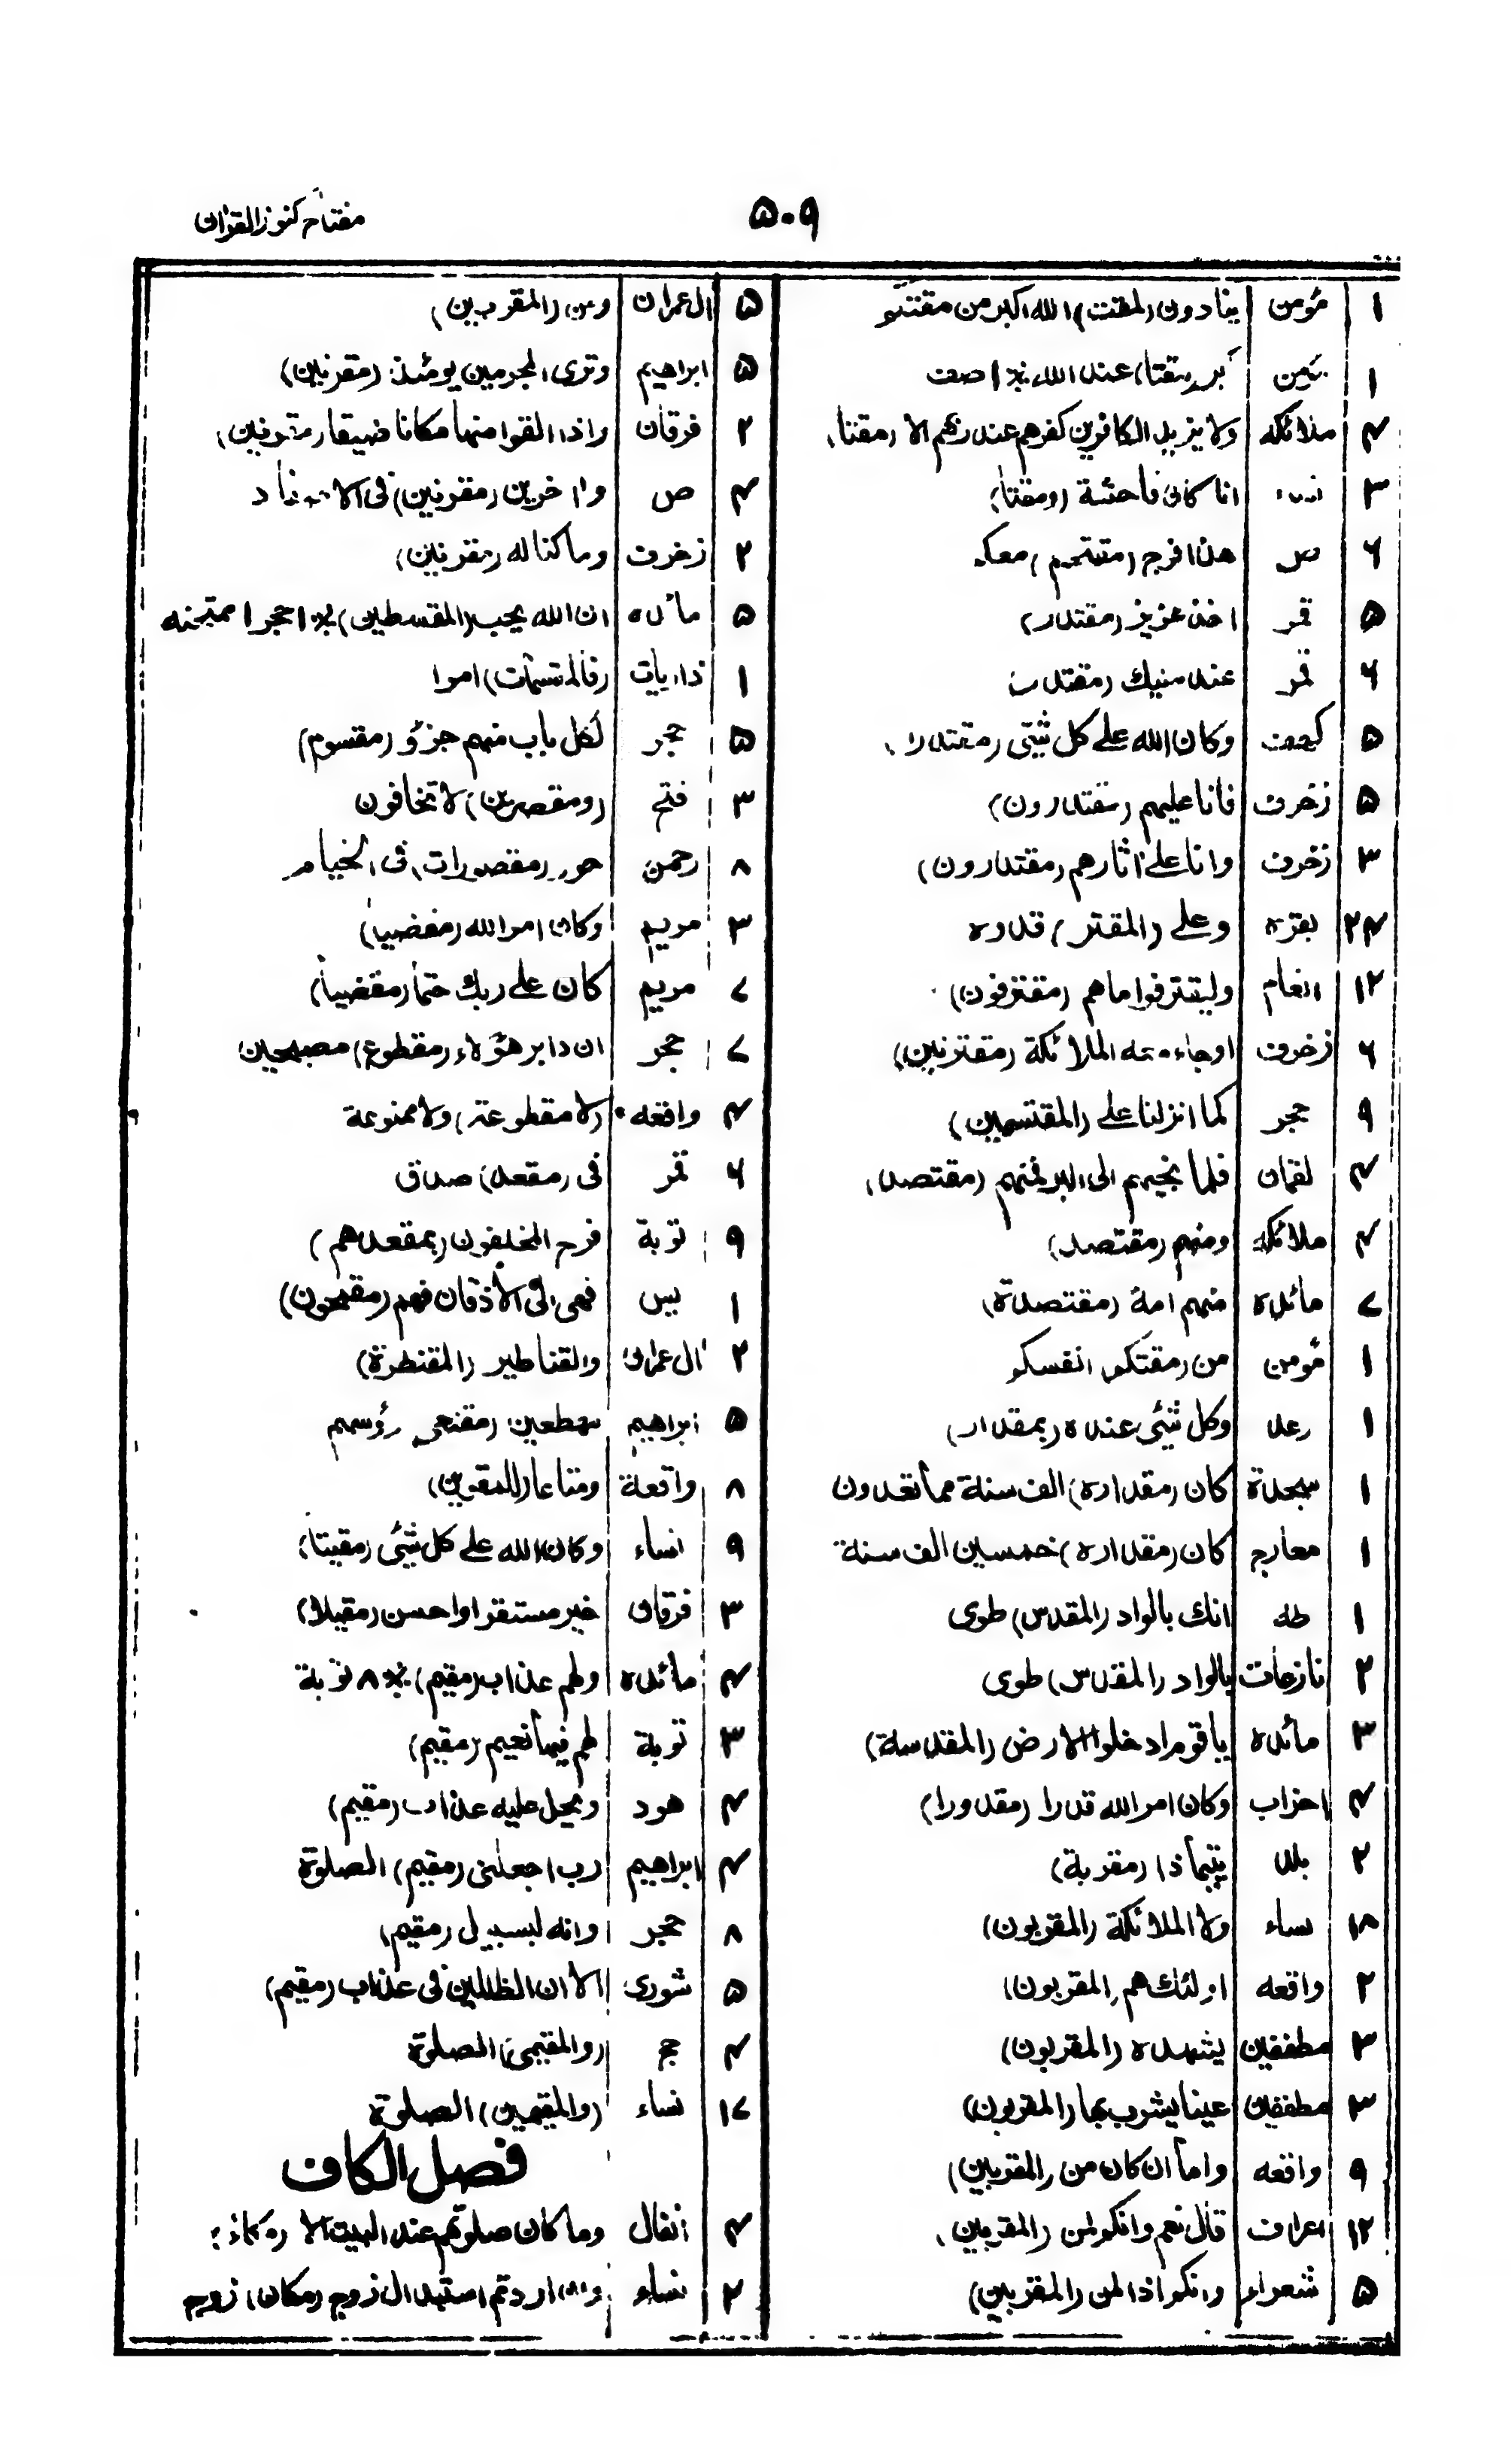 مفتاح كنوز القران
۵۰۹
۱ مؤمن ينادون (المقت) الله اكبر من مقتكو
۱ مؤمن كبر (مقتا) عند الله ۱ صف
۴ ملائكه ولا يزيد الكافرين كفرهم عند ربهم الا (مقتا)
۳ نساء انا كان فاحشة (ومقتا)
۶ ص هذا فرج (مقتحم) معكم
۵ قمر اخذ عزيز (مقتدر)
۶ قمر عند مليك (مقتدر)
۵ كهف وكان الله على كل شئ (مقتدرا)
۵ زخرف فانا عليهم (مقتدرون)
۳ زخرف وانا على اثارهم (مقتدرون)
۲۴ بقره وعلى (المقتر) قدره
۱۲ انعام وليقترفوا ما هم (مقترفون)
۶ زخرف اوجاء معه الملائكة (مقترنين)
۹ حجر كما انزلنا على (المقتسمين)
۴ لقمان فلما نجيهم الى البر فمنهم (مقتصد)
۴ ملائكه ومنهم (مقتصد)
۷ مائده منهم امة (مقتصدة)
۱ مؤمن من (مقتكم) انفسكو
۱ رعد وكل شئ عنده (بمقدار)
۱ سجدة كان (مقداره) الف سنة مما تعدون
۱ معارج كان (مقداره) خمسين الف سنة
۱ طه انك بالواد (المقدس) طوى
۲ نازعات بالواد (المقدس) طوى
۳ مائده يا قوم ادخلوا الارض (المقدسة)
۴ احزاب وكان امر الله قدرا (مقدورا)
۲ بلد يتيما ذا (مقربة)
۱۸ نساء ولا الملائكة (المقربون)
۲ واقعه اولئك هم (المقربون)
۳ مطففين يشهده (المقربون)
۳ مطففين عينا يشرب بها (المقربون)
۹ واقعه واما ان كان من (المقربين)
۱۲ اعراف قال نعم وانكو لمن (المقربين)
۵ شعراء وانكو اذا لمن (المقربين)
۵ ال عمران ومن (المقربين)
۵ ابراهيم وترى المجرمين يومئذ (مقرنين)
۲ فرقان واذا القوا منها مكانا ضيقا (مقرنين)
۴ ص واخرين (مقرنين) فى الاصفاد
۲ زخرف وما كنا له (مقرنين)
۵ مائده ان الله يحب (المقسطين) ۱ حجر ۱ ممتحنه
۱ ذاريات (فالمقسمات) امرا
۵ حجر لكل باب منهم جزؤ (مقسوم)
۳ فتح (ومقصرين) لا تخافون
۸ رحمن حور (مقصورات) فى الخيام
۳ مريم وكان امر الله (مقضيا)
۷ مريم كان على ربك حتما (مقضيا)
۷ حجر ان دابر هؤلاء (مقطوع) مصبحين
۴ واقعه (لا مقطوعة) ولا ممنوعة
۶ قمر فى (مقعد) صدق
۹ توبة فرح المخلفون (بمقعدهم)
۱ يس فهى الى الاذقان فهم (مقمحون)
۲ ال عمران والقناطير (المقنطرة)
۵ ابراهيم مهطعين (مقنعى) رؤسهم
۸ واقعة ومتاعا (للمقوين)
۹ نساء وكان الله على كل شئ (مقيتا)
۳ فرقان خير مستقرا واحسن (مقيلا)
۴ مائده ولهم عذاب (مقيم) ۸ توبة
۳ توبة لهم فيها نعيم (مقيم)
۴ هود ويحل عليه عذاب (مقيم)
۴ ابراهيم رب اجعلنى (مقيم) الصلوة
۸ حجر وانه لبسبيل (مقيم)
۵ شورى الا ان الظالمين فى عذاب (مقيم)
۴ حج (والمقيمى) الصلوة
۱۷ نساء (والمقيمين) الصلوة
فصل الكاف
۴ انفال وما كان صلوتهم عند البيت الا (مكاء)
۲ نساء وان اردتم استبدال زوج (مكان) زوج